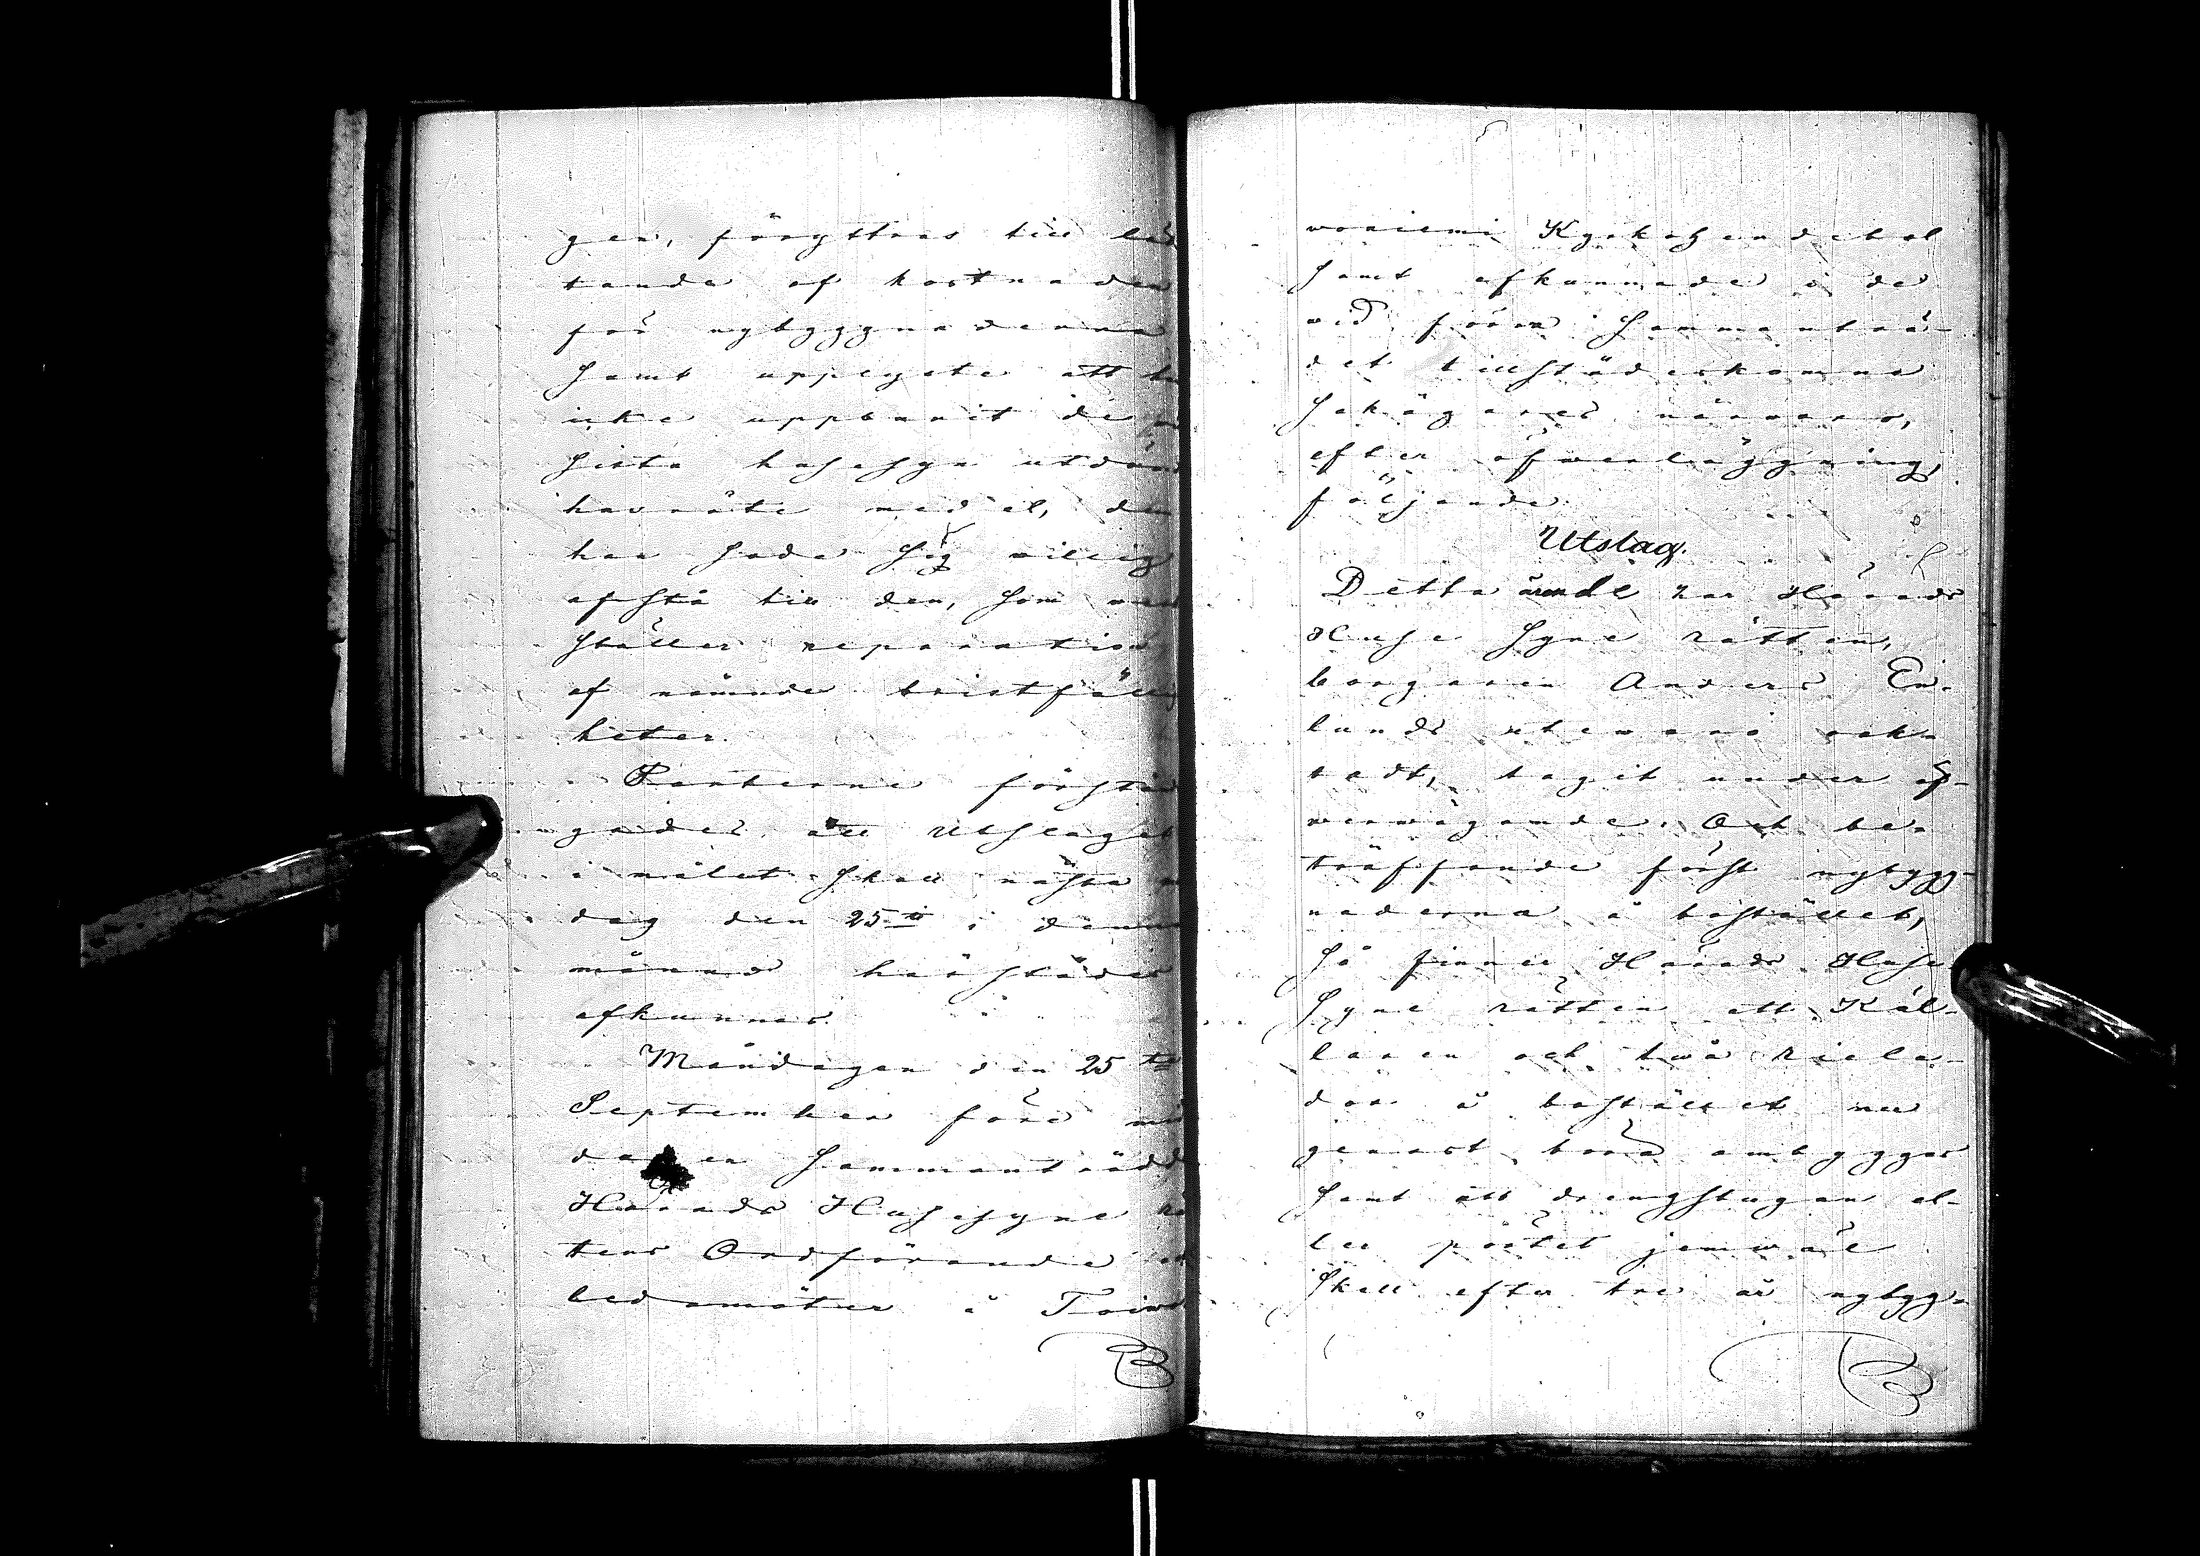 gen, föryttras till läc
tande af kostnaden
för nybyggnaderna
samt upplyste att
icke uppburit de
sista husesyn utdöm
husröte medel, dem
han sade sig villig
afstå till den, som verk
ställer reparation
af nämnde bristfällig
heter.
Parterne förstän
gades, att Utslaget
i målet skall nästa
dag den 25te i denna
månad härstädes
afkunnas.
Måndagen den 25te
September före mid
dagen sammanträdde
Härads Husesyne rät
tens Ordförande och
ledamöter å Toiwo
woniemi Kyrkoherdebol
samt afkunnade i de
wid förra sammanträ-
det tillstädeskomne
sakägares närvaro,
efter öfwerläggning,
följande
Utslag.
Detta ärende har Härads
Huse Syne rätten,
borgaren Anders En-
lunds utewaro oak-
tadt, tagit under öf-
werwägande. Och be-
träffande först nybygg-
naderna å bostället,
så finner Härads Huse
Syne rätten att Käl-
laren och twå rielä-
dor å bostället nu
genast böra ombyggas
samt att drengstugan el-
ler pörtet jemwäl
skall efter tre år nybygg-